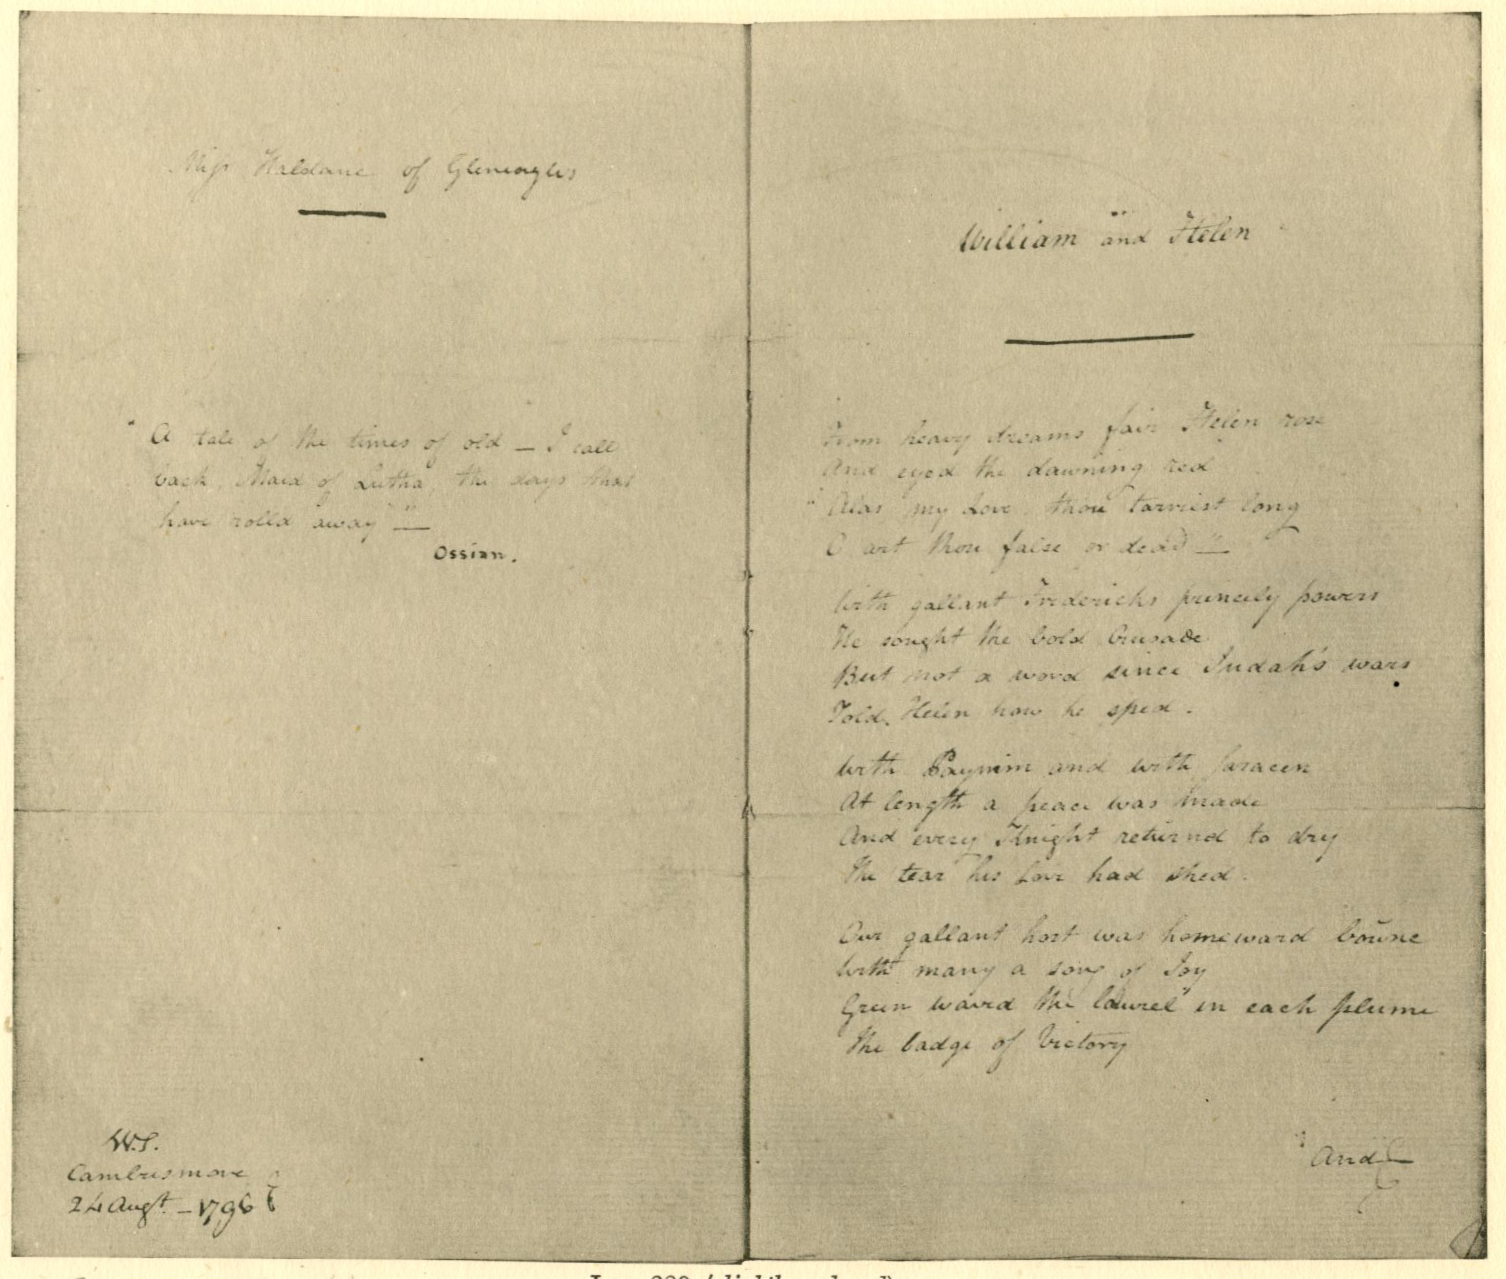 Miss Haldane of Gleneagles
" A tale of the times of old — I call
back, Maid of Lutha, the days that
have rolld away " —
Ossian.
W.S.
Cambusmore
24 Augt. — 1796
William and Helen
From heavy dreams fair Helen rose
And eyed the dawning red
" Alas my Love thou tarriest long
O art thou false or dead " —
With gallant Fredericks princely powers
He sought the bold Crusade
But not a word since Judah's wars
Told Helen how he sped.
With Paynim and with Saracen
At length a peace was made
And every Knight returnd to dry
The tear his Love had shed.
Our gallant host was homeward boune
With many a song of Joy
Green waved the laurel in each plume
The badge of Victory
And